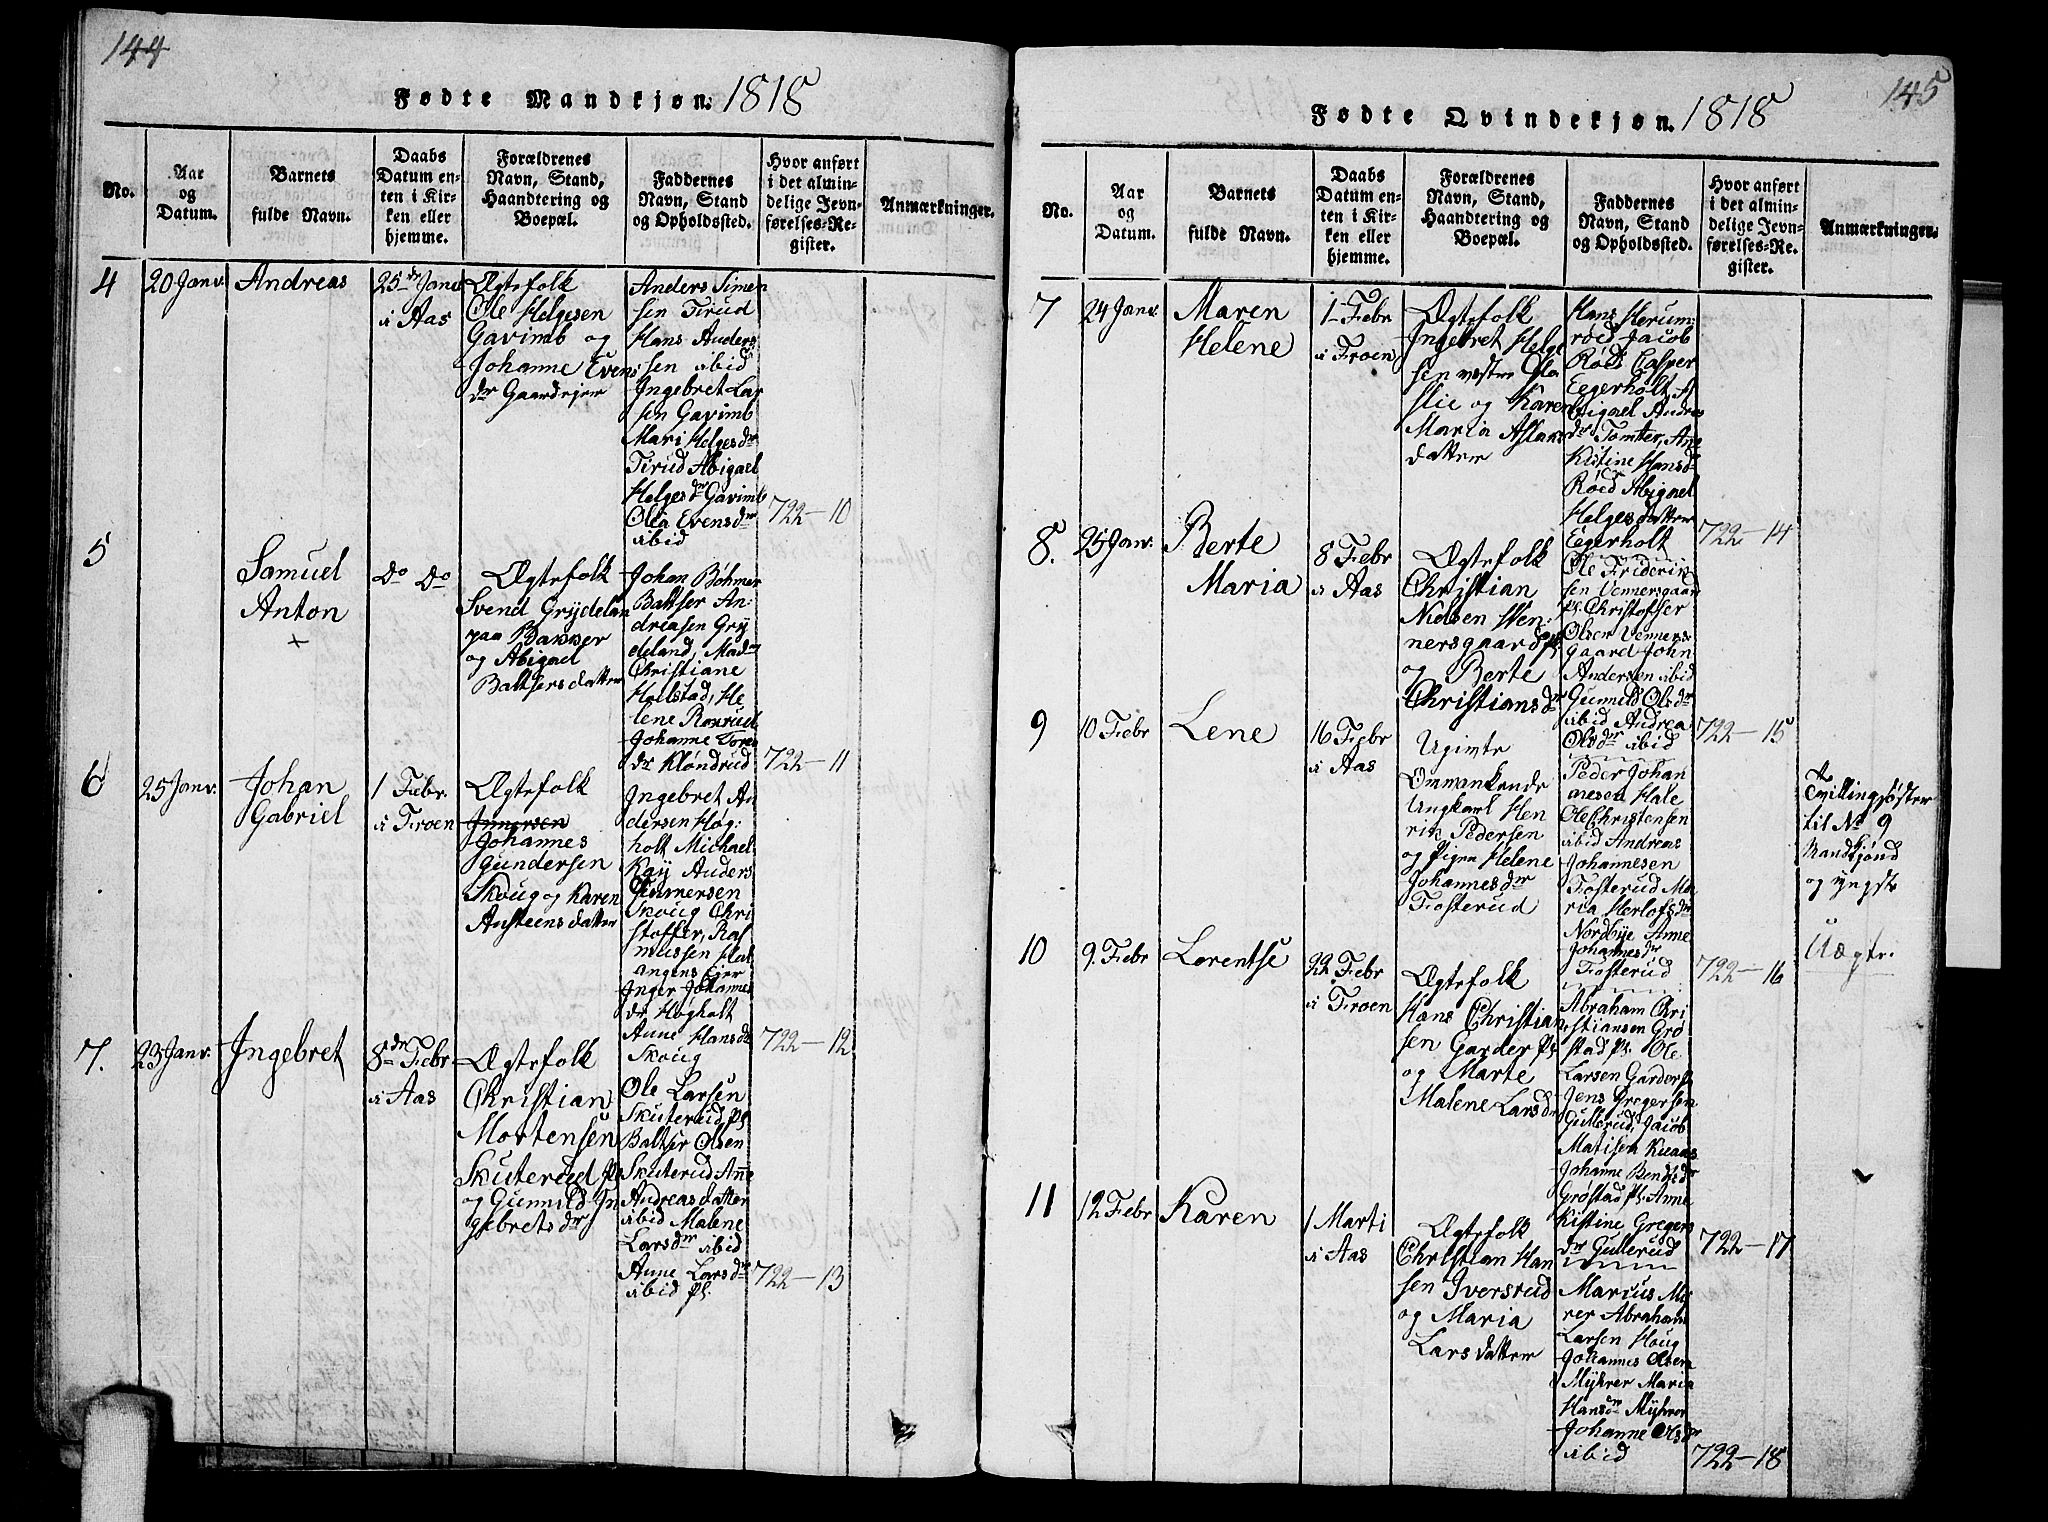 144
Fødte Mandkjøn. 1818
No.
Aar
og
Datum.
Barnets
fulde Navn.
Daabs
Datum en-
ten i Kir-
ken eller
hjemme.
Forældrenes
Navn, Stand,
Haandtering og
Boepæl.
Faddernes
Navn, Stand
og Opholdssted.
Hvor anført
i det almin-
delige Jevn-
førelses-Re-
gister.
Anmærkninger.
4
20 Janv.
Andreas
25de Janv
i Aas
Ægtefolk
Ole Helgesen
Gavimb og
Johanne Evens
dr Gaardejer
Anders Simen
sen Tirud
Hans Anders
sen ibid
Ingebret Lar
sen Gavimb
Mari Helgesdr
Tirud Abigael
Helgesdr Gavimb
Olia Evensdr
ibid
722-10
5
Samuel
Anton
+
do do
Ægtefolk
Svend Grydelan
paa Bakker
og Abigael
Baltsersdatter
Johan Böhmer
Baltser An:
driasen Gry
deland, Madm
Christiane
Holstad, He
lene Ronrud
Johanne Tores
dr Kløndrud
722-11
6
25 Janv.
Johan
Gabriel
1 Febr.
i Froen
Ægtefolk
Johannes
Gundersen
Skoug og Karen
Austeensdatter
Ingebret An
dersen Høg:
holt Michael
Kay Anders
Gunnersen
Skoug Chri
stoffer, Ras
mussen Hal
angens Eier
Inger Johannes
dr Høgholt
Anne Hansdr
Skoug
722-12
7.
23 Janv.
Ingebret
8de Febr
i Aas
Ægtefolk
Christian
Mortensen
Skuterud pl
og Gunnild In
gebretsdr
Ole Larsen
Skuterud pl.
Baltser Olsen
Skuterud Anne
Andreasdatter
ibid Malene
Larsdr ibid
Anne Larsdr
ibid pl.
722-13
145
Fødte Qvindekjøn. 1818
No.
Aar
og
Datum.
Barnets
fulde Navn.
Daabs
Datum en-
ten i Kir-
ken eller
hjemme.
Forældrenes
Navn, Stand,
Haandtering og
Boepæl.
Faddernes
Navn, Stand
og Opholdssted.
Hvor anført
i det almin-
delige Jevn-
førelses-Re-
gister.
Anmærkninger.
7
24 Janv.
Maren
Helene
1 Febr
i Froen
Ægtefolk
Ingebret Helge
sen vestre Gla
slie og Karen
Maria Aslaks
datter
Hans Herum:
röed Jacob
Röed Casper
Eegerholt, A
bigael Andrea
dr Tomter, Ane
Kistine Hansdr
Röed Abigael
Helgesdatter
Eegerholt
722-14
8.
25 Janv.
Berte
Maria
8 Febr
i Aas
Ægtefolk
Christian
Nielsen Wen:
nersgaard pl.
og Berte
Christiansdr
Ole Friderik
sen Vennersgaard
pl. Christoffer
Olsen Venners:
gaard John
Andersen ibid
Gunnild Olsdr
ibid Andrea
Olsdr ibid
722-15
9
10 Febr
Lene
16 Febr
i Aas
Ugivte
Ommankende
Ungkarl Hen
rik Pedersen
og Pigen Helene
Johannesdr
Fosterud
Peder Johan
nesen Hale
Ole Christensen
ibid Andreas
Johannesen
Fosterud Ma
ria Herlofsdr
Nordbye Anne
Johannesdr
Fosterud
722-16
Tvillingsøster
til No 9
Mandkjønd
og yngste
Uægte.
10
9. Febr
Lorentse
22 Febr
i Froen
Ægtefolk
Hans Christian
sen Garder pl.
og Marte
Malene Larsdr
Abraham Chri
stiansen Gro
stad pl. Ole
Larsen Garder
Jens Gregersen
Gullerud, Jacob
Matisen Kuaas
Johanne Bendtsdr
Grøstad pl. Anne
Kistine Gregers
dr Gullerud
722-17
11
12 Febr
Karen
1 Marti
i Aas
Ægtefolk
Christian Han
sen Iversrud
og Maria
Larsdatter
Marcus My
rer Abraham
Larsen Houg
Johannes Olsen
Myhrer Maria
Hansdr Myhrer
Johanne Olsdr
ibid
722-18